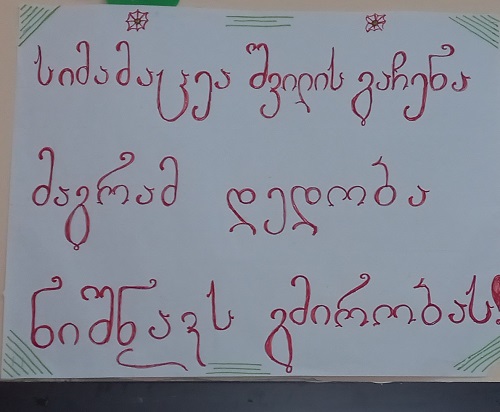 სიმამაცეა შვილის გაჩენა
მაგრამ დედობა
ნიშნავს გმირობას!